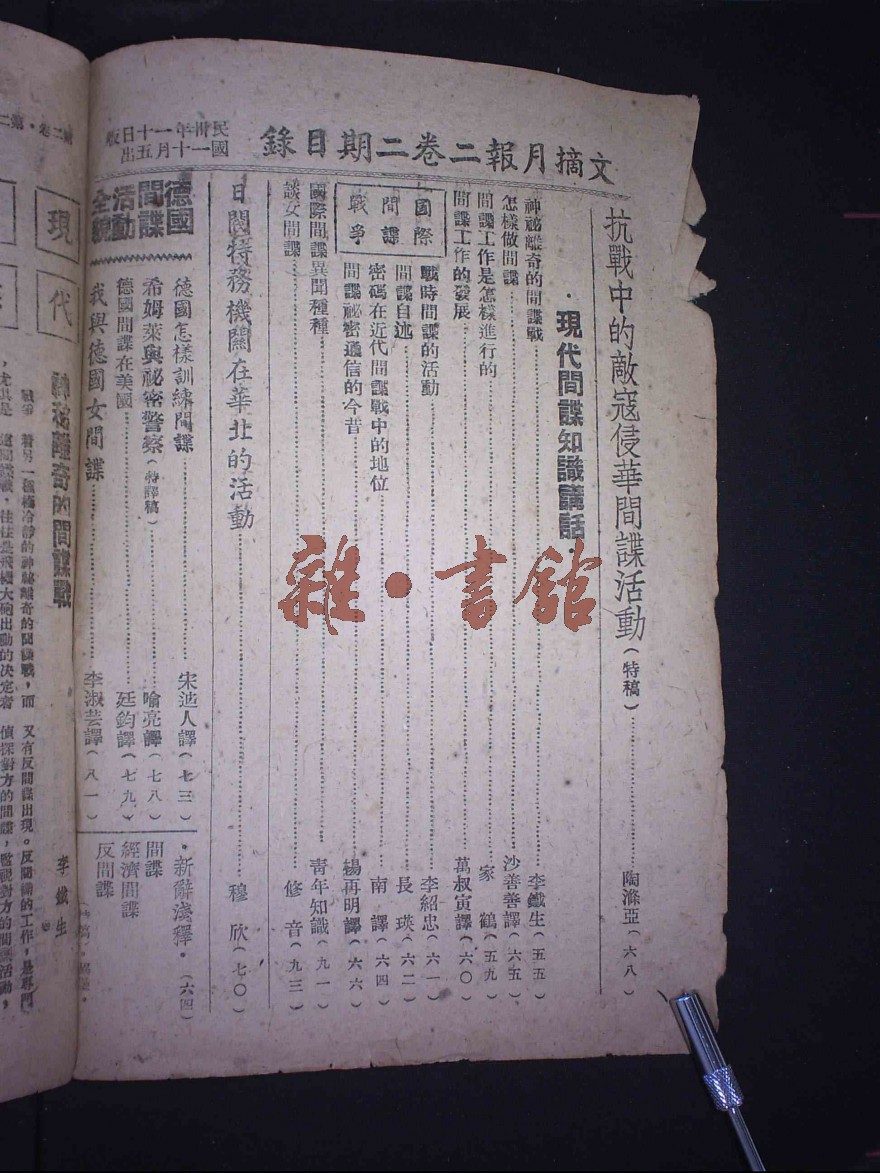 文摘月報二卷二期目錄
民國卅一年十一月十五日出版
抗戰中的敵寇侵華間諜活動(特稿)……陶滌亞(六八)
·現代間諜知識講話·
神祕離奇的間諜戰……李鐵生(五五)
怎樣做間諜……沙善善譯(六五)
間諜工作是怎樣進行的……家鶴(五九)
間諜工作的發展……萬叔寅譯(六〇)
國際間諜戰爭
戰時間諜的活動……李紹忠(六一)
間諜自述……長瑛(六二)
密碼在近代間諜戰中的地位……南譯(六四)
間諜祕密通信的今昔……楊再明譯(六六)
國際間諜異聞種種……青年知識(九一)
談女間諜……修音(九三)
日閥特務機關在華北的活動……穆欣(七〇)
德國間諜活動全貌
德國怎樣訓練間諜……宋迆人譯(七三)
希姆萊與祕密警察(特譯稿)……喻亮譯(七八)
德國間諜在美國……廷鈞譯(七九)
我與德國女間諜……李淑芸譯(八一)
·新辭淺釋·(六四)
間諜
經濟間諜
反間諜
現代
神祕離奇的間諜戰
李鐵生
又有反間諜出現。反間諜的工作,是專門
偵探對方的間諜,監視對方的間諜活動,
雜·書館